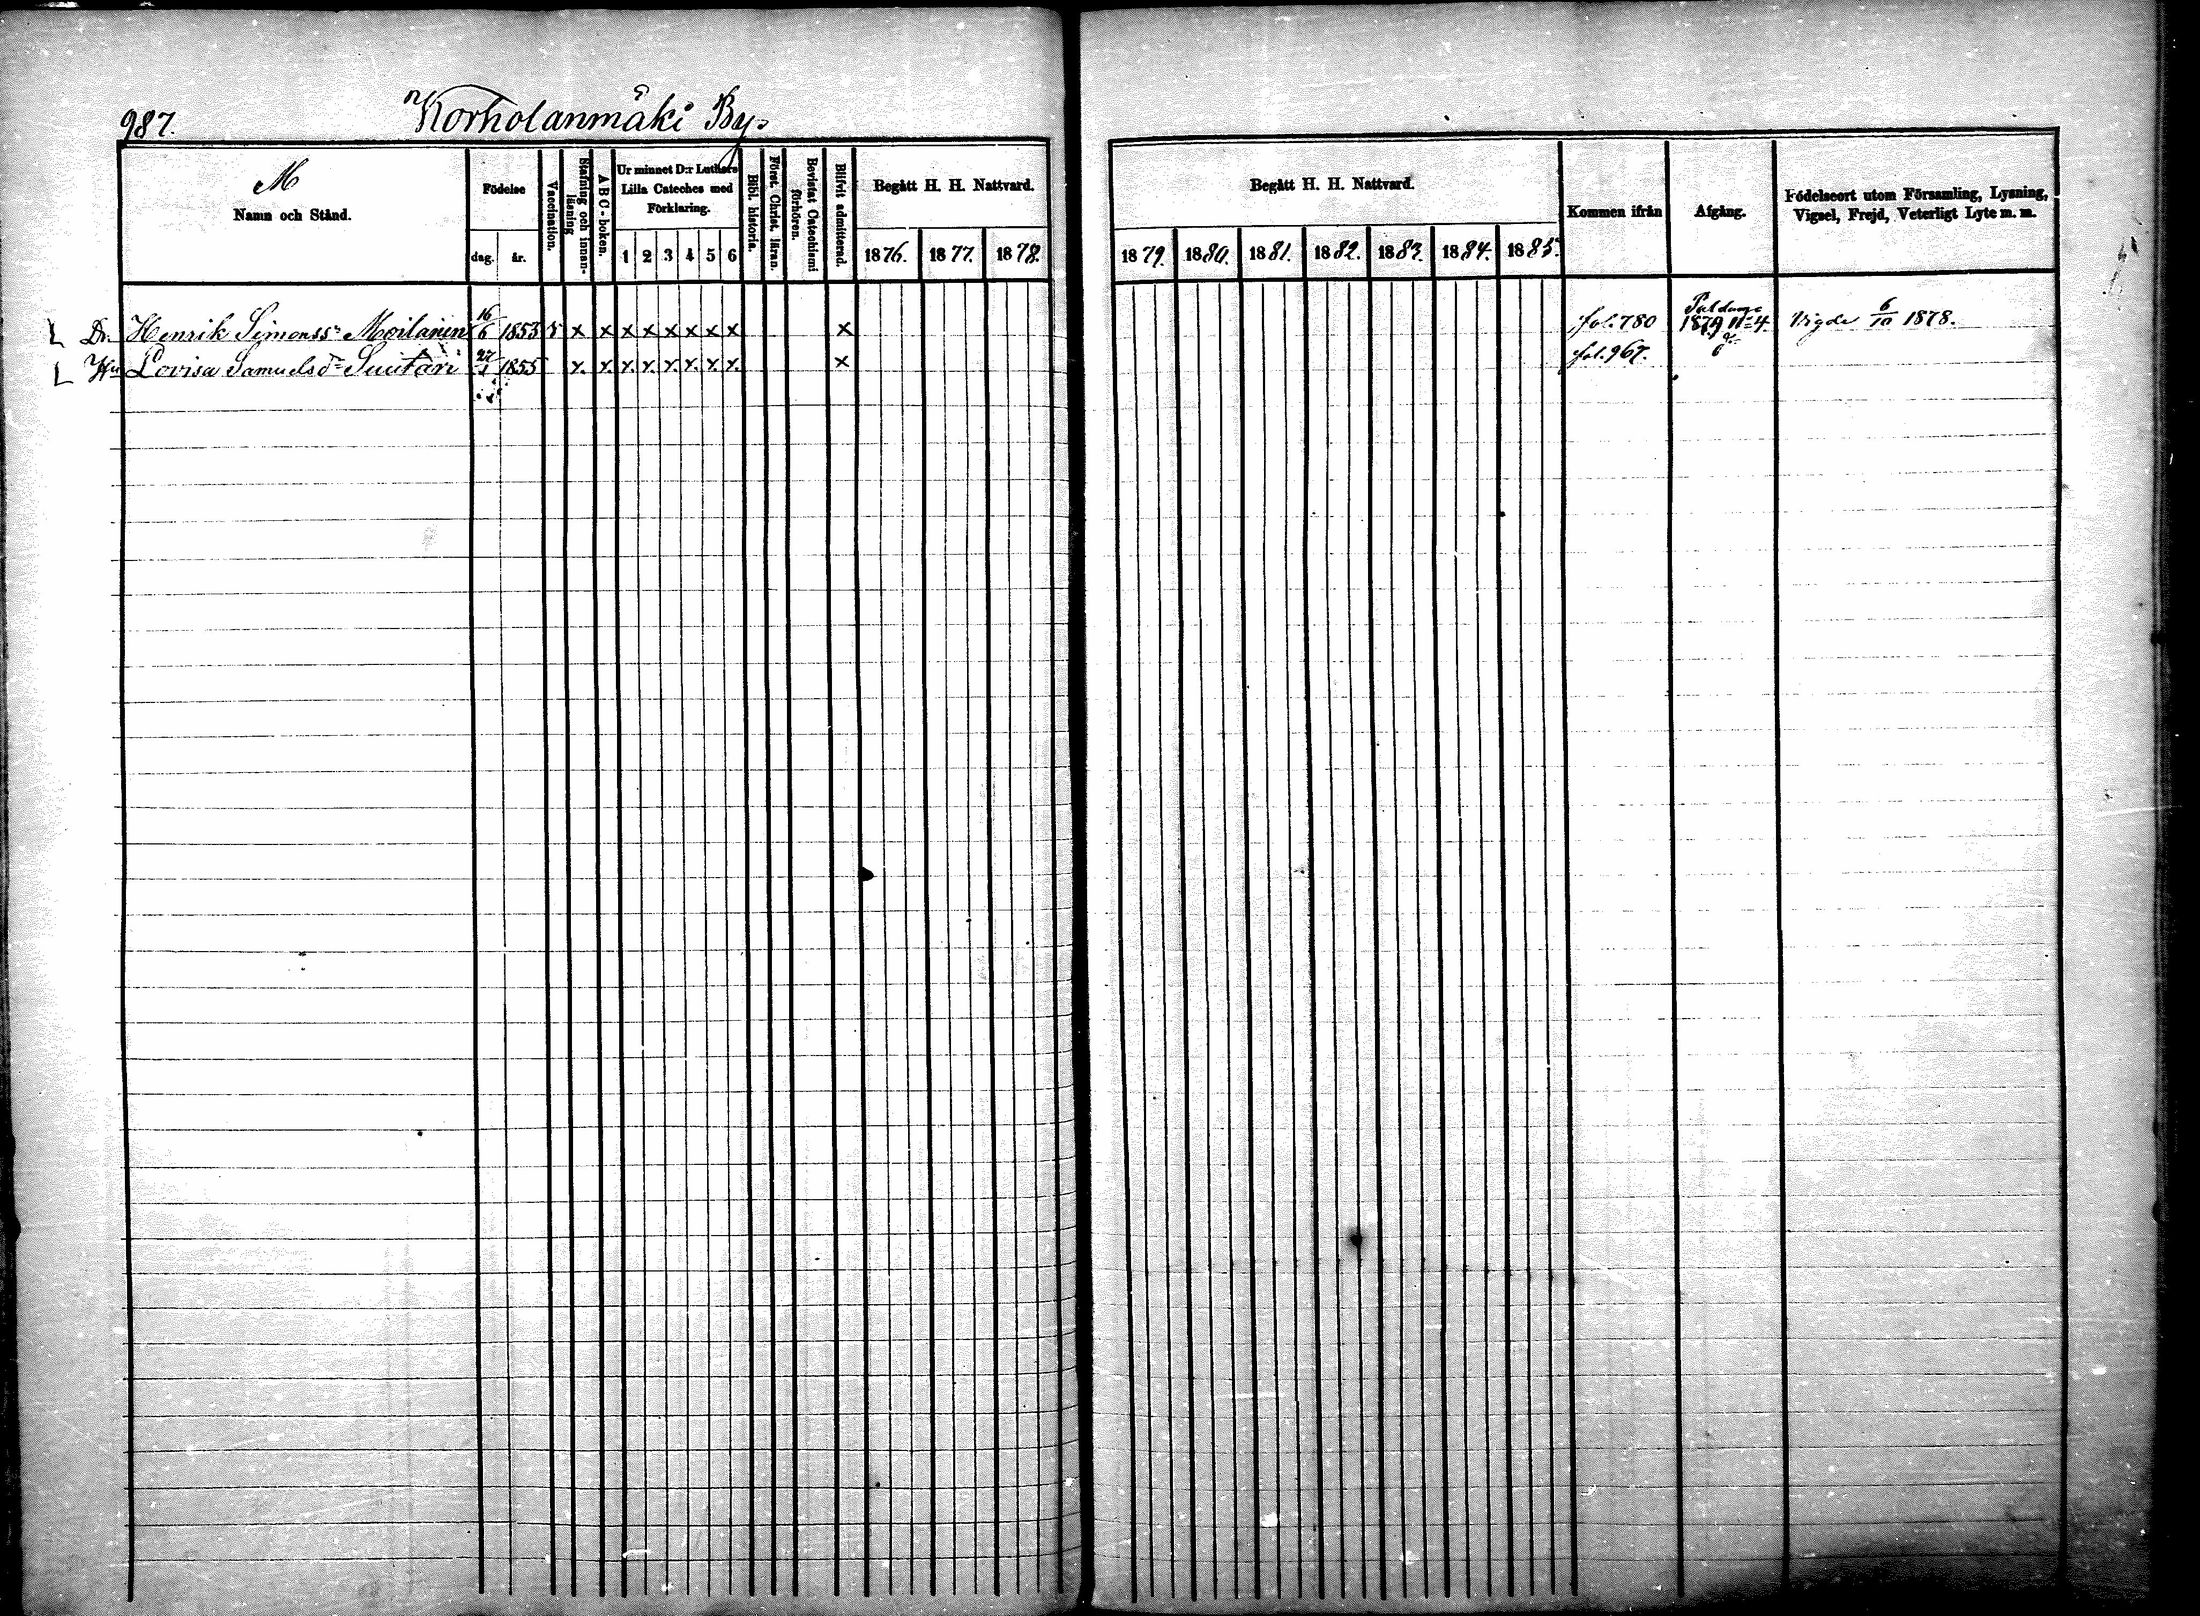 987. Korholanmäki By.
M
Namn och Stånd.
Födelse
dag. år.
Vaccination.
Stafning och innan-läsning
A B C-boken.
Ur minnet D:r Luthers
Lilla Cateches med
Förklaring.
1 2 3 4 5 6
Bibl. historia.
Först. Christ. läran.
Bevistat Catechismi förhören.
Blifvit admitterad.
Begått H. H. Nattvard.
1876. 1877. 1878.
Begått H. H. Nattvard.
1879. 1880. 1881. 1882. 1883. 1884. 1885.
Kommen ifrån
Afgång.
Födelseort utom Församling, Lysning,
Vigsel, Frejd, Veterligt Lyte m. m.
Dr. Henrik Simonss. Moilanen 16/6 1853 v x x x x x x x x x fol. 780 Paldamo 1879 No 4 Vigde 6/10 1878.
Hu Lovisa Samuelsdr Suutari 27/1 1855 x. x. x. x. x. x. x. x. x fol. 967.